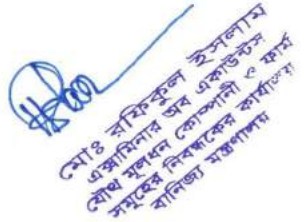 মোঃ রফিকুল ইসলাম
এক্সামিনার অব একাউন্টস
যৌথ মূলধন কোম্পানী ও ফার্ম
সমূহের নিবন্ধকের কার্যালয়
বানিজ্য মন্ত্রণালয়